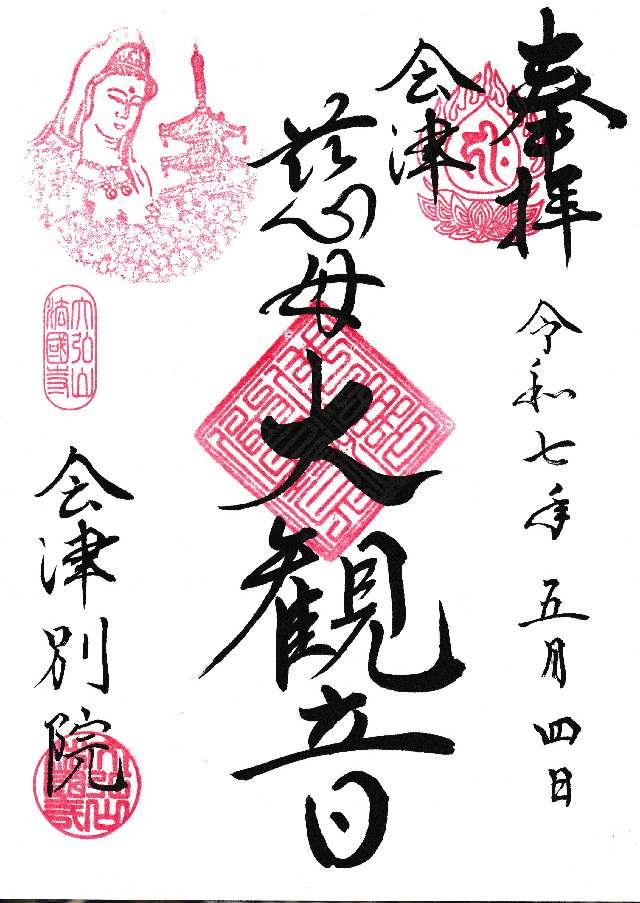 奉拝
令和七年五月四日
会津
慈母大観音
大弘山
法國寺
会津別院